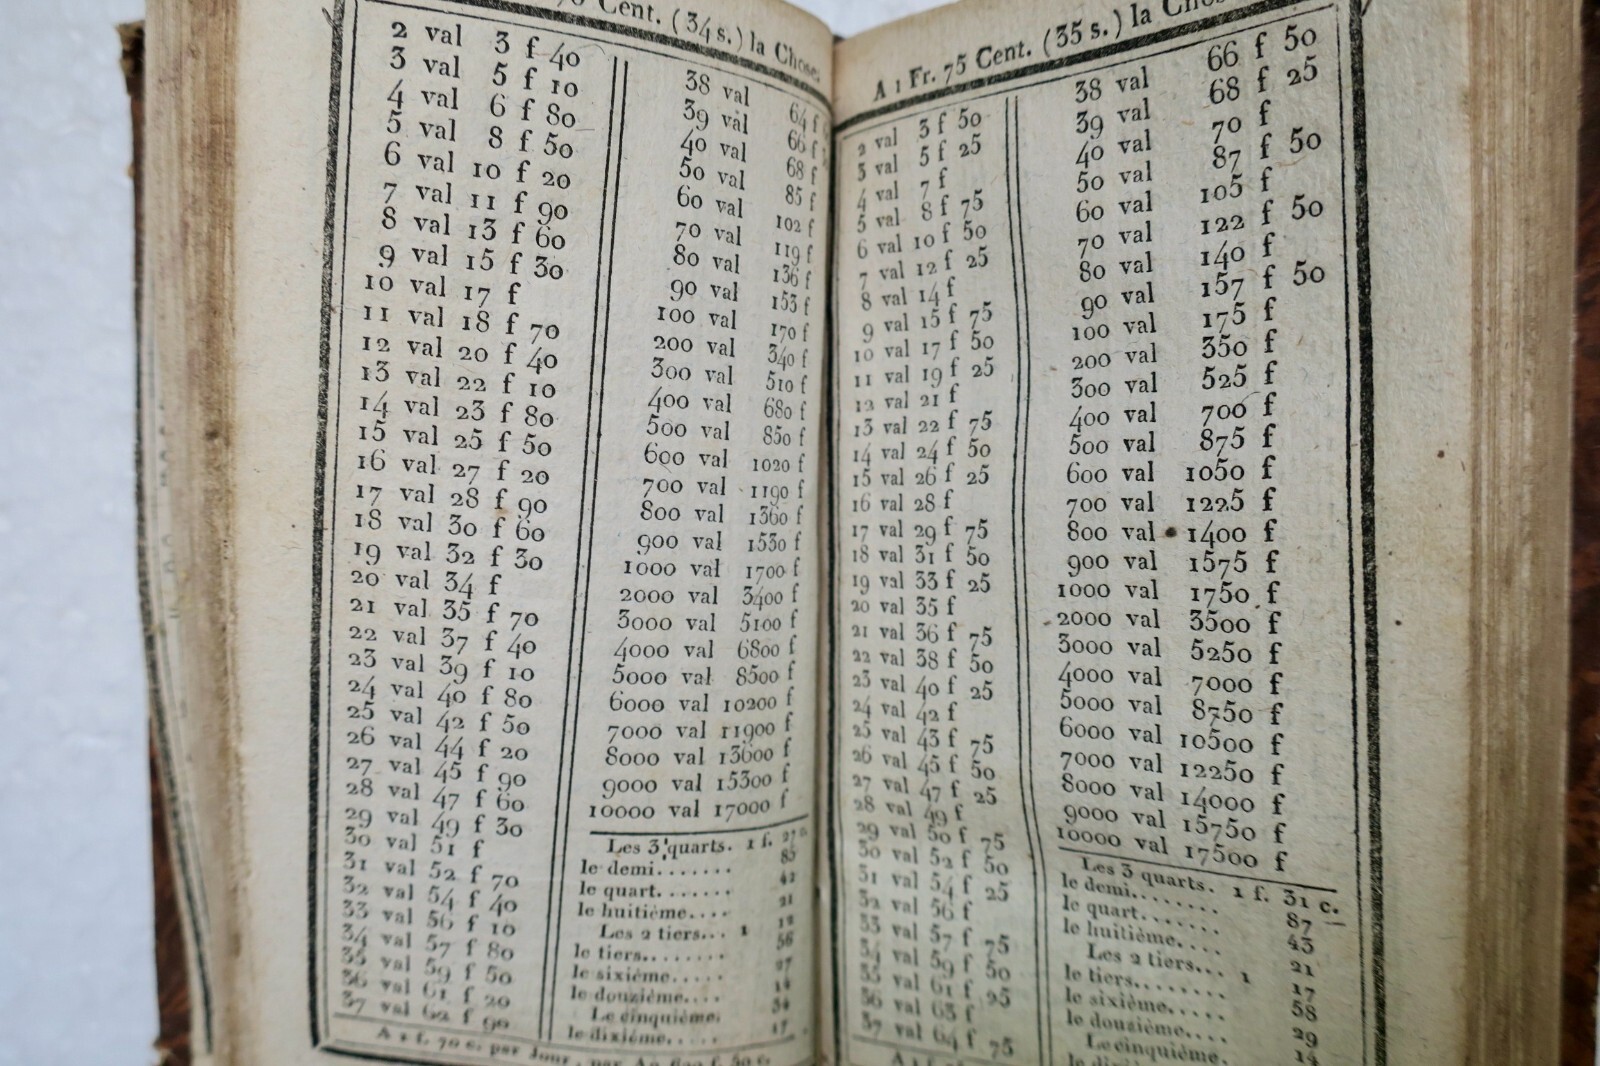 70 Cent. (34 s.) la Chose.
2 val 3 f 40
3 val 5 f 10
4 val 6 f 80
5 val 8 f 50
6 val 10 f 20
7 val 11 f 90
8 val 13 f 60
9 val 15 f 30
10 val 17 f
11 val 18 f 70
12 val 20 f 40
13 val 22 f 10
14 val 23 f 80
15 val 25 f 50
16 val 27 f 20
17 val 28 f 90
18 val 30 f 60
19 val 32 f 30
20 val 34 f
21 val 35 f 70
22 val 37 f 40
23 val 39 f 10
24 val 40 f 80
25 val 42 f 50
26 val 44 f 20
27 val 45 f 90
28 val 47 f 60
29 val 49 f 30
30 val 51 f
31 val 52 f 70
32 val 54 f 40
33 val 56 f 10
34 val 57 f 80
35 val 59 f 50
36 val 61 f 20
37 val 62 f 90
38 val 64 f
39 val 66 f
40 val 68 f
50 val 85 f
60 val 102 f
70 val 119 f
80 val 136 f
90 val 153 f
100 val 170 f
200 val 340 f
300 val 510 f
400 val 680 f
500 val 850 f
600 val 1020 f
700 val 1190 f
800 val 1360 f
900 val 1530 f
1000 val 1700 f
2000 val 3400 f
3000 val 5100 f
4000 val 6800 f
5000 val 8500 f
6000 val 10200 f
7000 val 11900 f
8000 val 13600 f
9000 val 15300 f
10000 val 17000 f
Les 3 quarts. 1 f. 27 c.
le demi....... 85
le quart....... 42
le huitième.... 21
Les 2 tiers... 1 12
le tiers........ 56
le sixième..... 27
le douzième.... 14
Le cinquième. 34
le dixième..... 17
A 1 f. 70 c. par Jour, par An 620 f. 50 c.
A 1 Fr. 75 Cent. (35 s.) la Chose
2 val 3 f 50
3 val 5 f 25
4 val 7 f
5 val 8 f 75
6 val 10 f 50
7 val 12 f 25
8 val 14 f
9 val 15 f 75
10 val 17 f 50
11 val 19 f 25
12 val 21 f
13 val 22 f 75
14 val 24 f 50
15 val 26 f 25
16 val 28 f
17 val 29 f 75
18 val 31 f 50
19 val 33 f 25
20 val 35 f
21 val 36 f 75
22 val 38 f 50
23 val 40 f 25
24 val 42 f
25 val 43 f 75
26 val 45 f 50
27 val 47 f 25
28 val 49 f
29 val 50 f 75
30 val 52 f 50
31 val 54 f 25
32 val 56 f
33 val 57 f 75
34 val 59 f 50
35 val 61 f 25
36 val 63 f
37 val 64 f 75
38 val 66 f 50
39 val 68 f 25
40 val 70 f
50 val 87 f 50
60 val 105 f
70 val 122 f 50
80 val 140 f
90 val 157 f 50
100 val 175 f
200 val 350 f
300 val 525 f
400 val 700 f
500 val 875 f
600 val 1050 f
700 val 1225 f
800 val 1400 f
900 val 1575 f
1000 val 1750 f
2000 val 3500 f
3000 val 5250 f
4000 val 7000 f
5000 val 8750 f
6000 val 10500 f
7000 val 12250 f
8000 val 14000 f
9000 val 15750 f
10000 val 17500 f
Les 3 quarts. 1 f. 31 c.
le demi........ 87
le quart....... 43
le huitième.... 21
Les 2 tiers... 1 17
le tiers........ 58
le sixième..... 29
le douzième.... 14
Le cinquième.
le dixième
A 1 f.